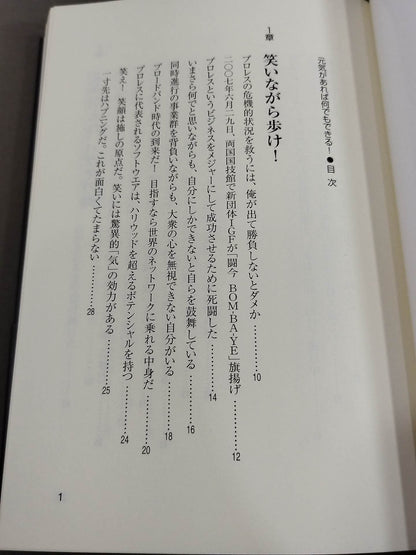 元気があれば何でもできる!●目 次
1章 笑いながら歩け!
プロレスの危機的状況を救うには、俺が出て勝負しないとダメか…………10
二〇〇七年六月二九日、両国国技館で新団体IGFが「闘今 BOM-BA-YE」旗揚げ…………12
プロレスというビジネスをメジャーにして成功させるために死闘した…………14
いまさら何でと思いながらも、自分にしかできないと自らを鼓舞している…………16
同時進行の事業群を背負いながらも、大衆の心を無視できない自分がいる…………18
ブロードバンド時代の到来だ! 目指すなら世界のネットワークに乗れる中身だ…………20
プロレスに代表されるソフトウエアは、ハリウッドを超えるポテンシャルを持つ…………24
笑え! 笑顔は施しの原点だ。笑いには驚異的「気」の効力がある…………25
一寸先はハプニングだ。これが面白くてたまらない…………28
1